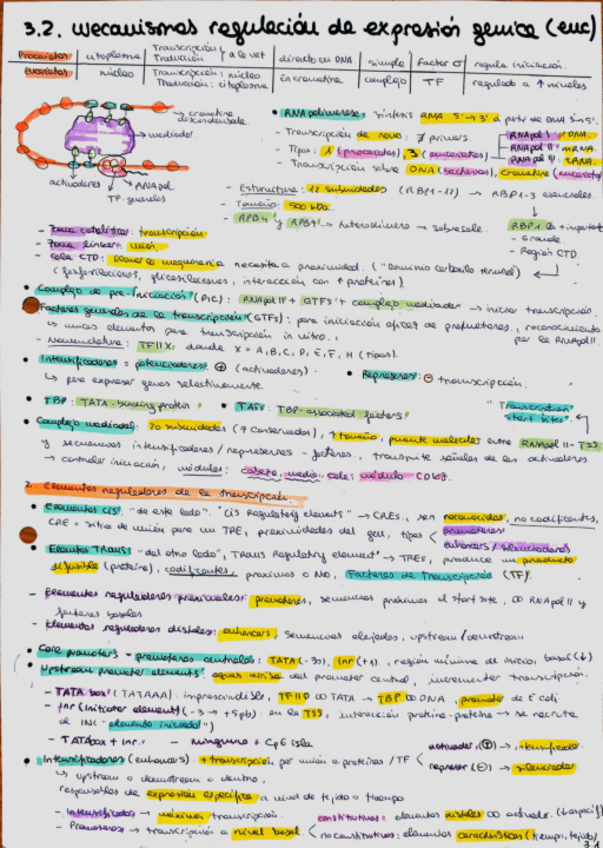 3.2. Mecanismos regulación de expresión génica (euc)
Procariotas citoplasma Transcripción y Traducción a la vez directo en DNA simple factor σ regula iniciación.
Eucariotas núcleo Transcripción: núcleo Traducción: citoplasma En cromatina complejo TF regulado a ↑ niveles
cromatina descondensada
mediador
activadores
RNApol
TF generales
• RNA polimerasa: síntesis RNA 5'→3' a partir de DNA 3'→5'.
- Transcripción de novo: primers.
- Tipos: 1 (procariotas), 3 (eucariotas)
RNApol I: rRNA.
RNApol II: mRNA.
RNApol III: tRNA.
- Transcripción sobre DNA (bacterias), cromatina (eucariotas)
- Estructura: 12 subunidades (RBP1-12) → RBP1-3 esenciales.
- Tamaño: 500 kDa.
- RPB4 y RPB7 → heterodímero → sobresale.
RBP1 la + importante
- Grande.
- Región CTD
- Zona catalítica: transcripción
- Zona linker: unión
- Cola CTD: maquinaria necesita a proximidad. ("Dominio carboxilo terminal")
(fosforilaciones, glicosilaciones, interacción con + proteínas)
• Complejo de pre-iniciación (PIC): RNApol II + GTFs + complejo mediador → iniciar transcripción.
Factores generales de la transcripción (GTFs): para iniciación eficaz de promotores, reconocimiento por la RNApol II.
↳ unos elementos para transcripción in vitro.
- Nomenclatura: TFIIX, donde X = A, B, C, D, E, F, H (tipos).
• Intensificadores = potenciadores: ⊕ (activadores)
• Represores: ⊖ transcripción.
↳ para expresar genes selectivamente.
• TBP: TATA-binding protein
• TAFs: TBP-associated factors
"Transcription start sites"
• Complejo mediador: 20 subunidades (7 conservadas), ↑ tamaño, puente molecular entre RNApol II - TSS
y secuencias intensificadores/represores - factores. transmite señales de los activadores
→ controlar iniciación, módulos: cabeza, medio, cola, módulo CDK8.
2. Elementos reguladores de la transcripción.
• Elementos Cis: "de este lado". "Cis Regulatory elements" → CREs, son reconocidas, no codificantes,
CRE = sitio de unión para un TRE, proximidades del gen, tipos
promotores
enhancers / silenciadores
• Elementos TRANS: "del otro lado", Trans Regulatory element → TREs, produce un producto
difusible (proteína), codificantes, próximos o NO, Factores de Transcripción (TF).
- Elementos reguladores proximales: promotores, secuencias próximas al start site, RNApol II y
factores basales
- Elementos reguladores distales: enhancers, secuencias alejadas, upstream/downstream
• Core promoters = promotores centrales: TATA (-30), Inr (+1), región mínima de inicio, basal (↓)
• Upstream promoter elements: aguas arriba del promotor central, incrementar transcripción.
- TATA box (TATAAA): imprescindible, TFIID TATA → TBP DNA, promotor de E. coli
- Inr (initiator element) (-3 → +5pb): en la TSS, interacción proteína-proteína → se recruta
de INR "elemento iniciador")
- TATA box + Inr. - Ninguno + CpG isla
• Intensificadores (enhancers): + transcripción, por unión a proteínas / TF
activador (⊕) → intensificador
represor (⊖) → silenciador
↳ upstream o downstream o dentro,
responsables de expresión específica a nivel de tejido o tiempo
- Intensificador → máxima transcripción.
- Promotores → transcripción a nivel basal.
constitutivos: elementos distales activador.
no constitutivos: elementos característicos (tiempo, tejido)
3.1